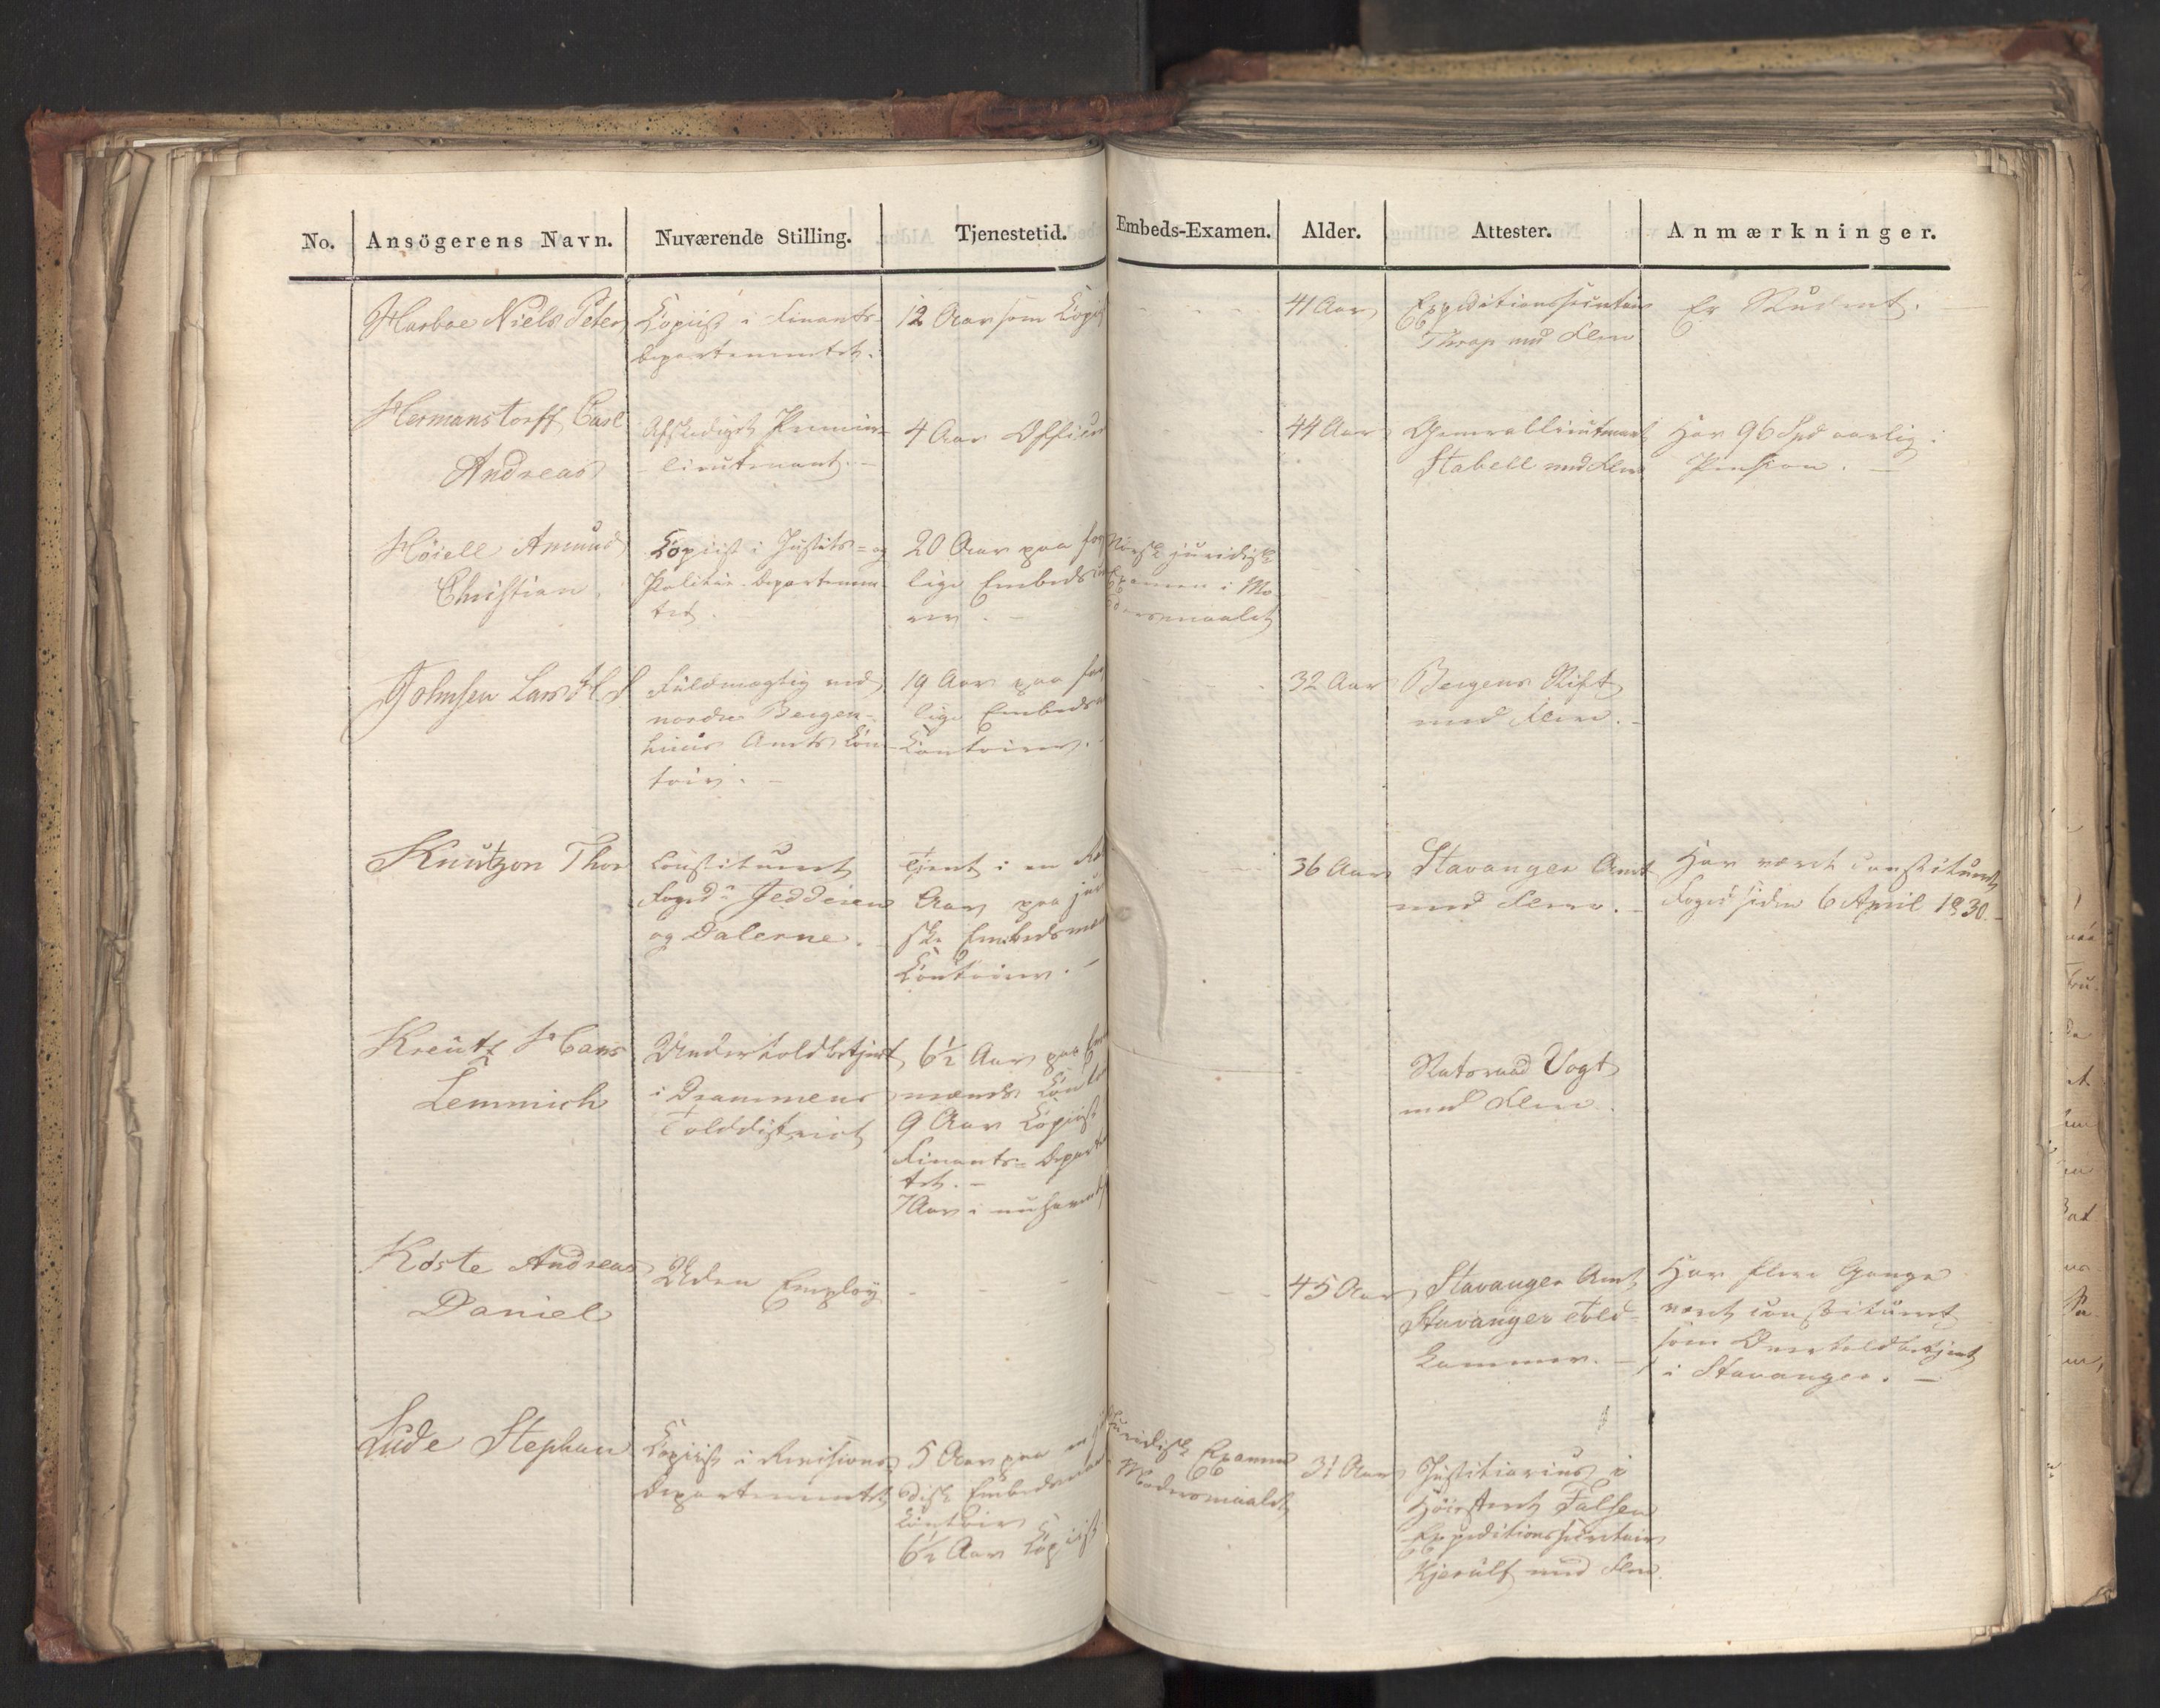 No. Ansögerens Navn. Nuværende Stilling. Tjenestetid. Embeds-Examen. Alder. Attester. Anmærkninger.
Harboe Niels Peter
Copiist i Finants-
departementet.
12 Aar som Copiist
41 Aar
Expeditionssecretair
Thrap med Flere
Er Student.
Hermanstorff Carl
Andreas
Afskediget Premier-
lieutenant.
4 Aar Officier
44 Aar
Generallieutenant
Stabell med Flere
Har 96 Spd aarlig i
Pension.
Höiell Amund
Christian
Copiist i Justits- og
Politie-Departemen-
tet.
20 Aar paa
lige
Norsk juridisk
Examen i Mo-
dersmaalet
Johnsen Lars
Fuldmægtig ved
nordre Bergen-
huus Amts Con-
toir.
19 Aar paa
lige
Contoirer.
32 Aar
Bergens Stift
med Flere.
Knutzon Thor
Constitueret
Foged i Jedderen
og Dalerne.
Tjent i en
Aar paa
ske Embedsmæn
Contoirer.
36 Aar
Stavanger Amt
med Flere.
Har været constitueret
Foged siden 6 April 1830.
Kreutz Hans
Lemmich
Undertoldbetjent
i Drammens
Tolddistrict
6½ Aar paa
mænds
9 Aar Copiist
Finants-
tet.
7 Aar i
Statsraad Vogt
med Flere.
Köste Andreas
Daniel
Uden Employ
45 Aar
Stavanger Amt
Stavanger Told-
kammer.
Har flere Gange
været constitueret
som Overtoldbetjent
i Stavanger.
Lude Stephan
Copiist i Revisions-
departementet
5 Aar paa en
disk
Contoir
6½ Aar Copiist
Juridisk Examen
i Modersmaalet
31 Aar
Justitiarius i
Höiesteret Falsen
Expeditionssecretair
Kjerulf med Flere.